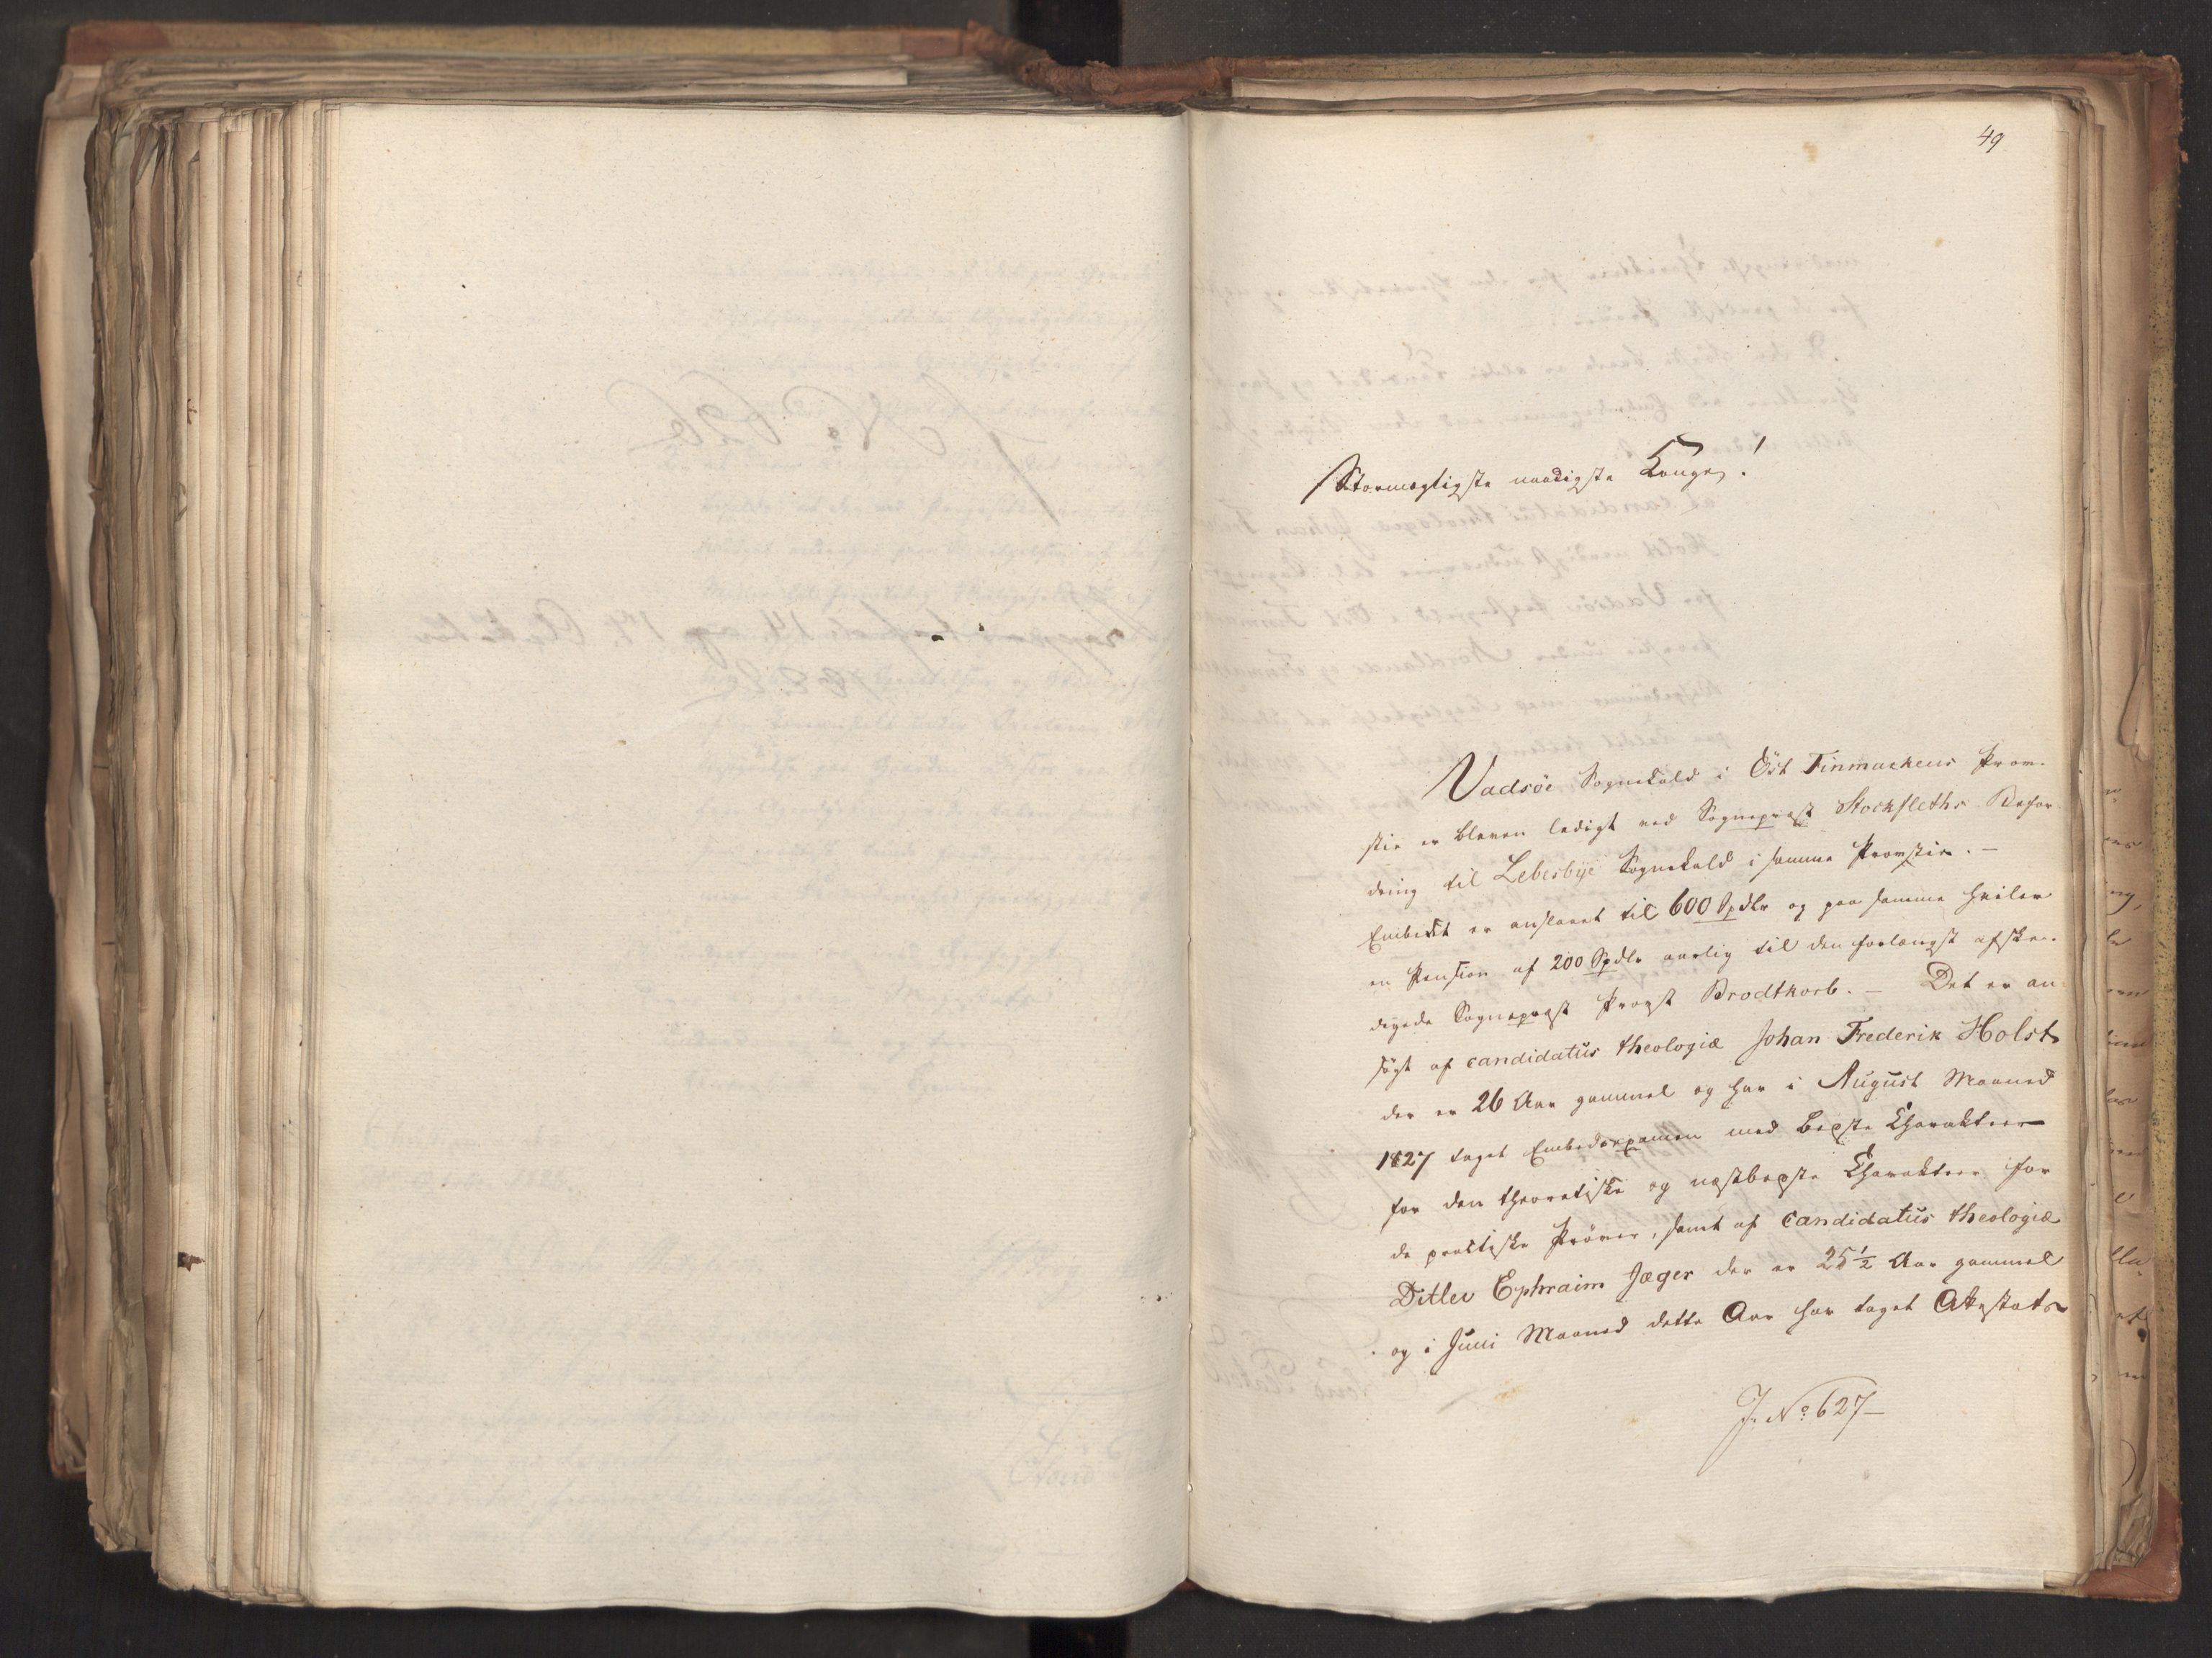 49
Stormægtigste naadigste Konge!
Vadsöe Sognekald i Öst Finmarkens Prov-
stie er bleven ledigt ved Sognepræst Stockfleths Befor-
dring til Lebesbye Sognekald i samme Provstie. –
Embedet er anslaaet til 600 Spdlr og paa samme hviler
en Pension af 200 Spdlr aarlig til den forlængst afske-
digede Sognepræst Provst Brodtkorb. – Det er an-
søgt af candidatus theologiæ Johan Frederik Holst
der er 26 Aar gammel og har i August Maaned
1827 taget Embedsexamen med bedste Charakteer
for den theoretiske og næstbedste Charakteer for
de practiske Prøver, samt af candidatus theologiæ
Ditlev Ephraim Jæger der er 25½ Aar gammel
og i Juni Maaned dette Aar har taget Attestats
J. No 627